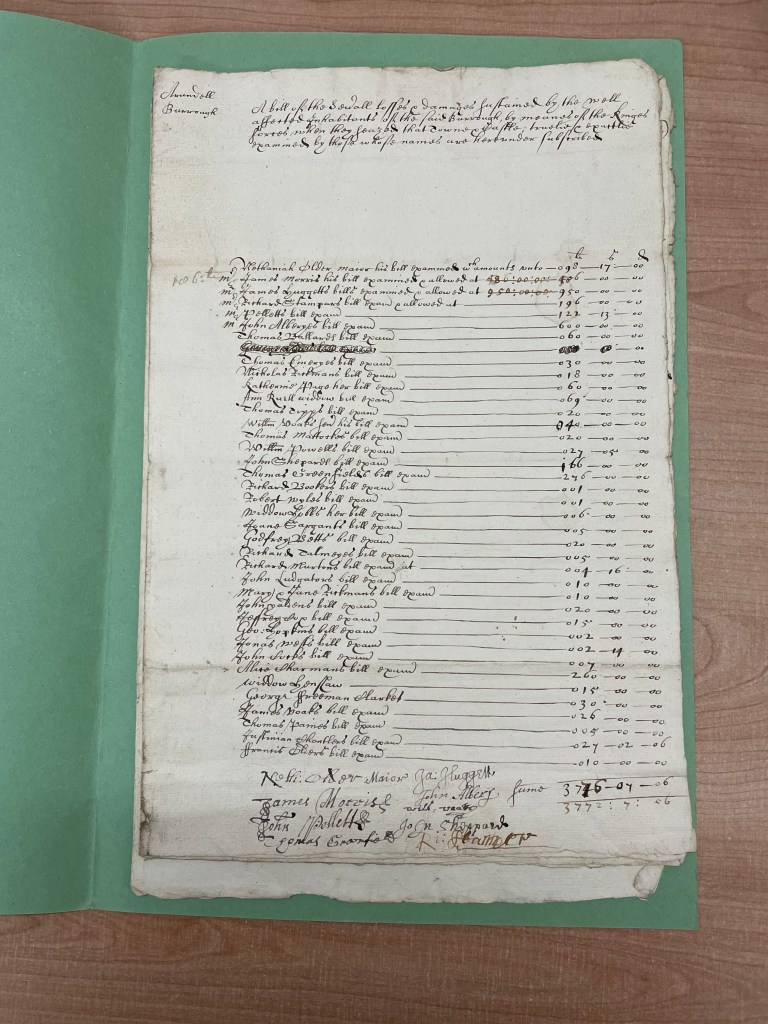 Arundell
Burrough
A bill of the sevall losses & damages sustained by the well
affected Inhabitants of the said Burrough, by meanes of the Kinges
forces, when they seazed that Towne & Castle, truelie & exactlie
examined by those whose names are hereunder subscribed
li s d
mr Nathaniah Older maior his bill examined wch amounts vnto 098 – 17 – 00
mr James Morris his bill examined & allowed at 480:00:00
mr James Huggetts bills examined & allowed at 950:00:00 950 – 00 – 00
mr Richard Stampers bill exam & allowed at 196 – 00 – 00
mr Pelletts bill exam 122 – 13 – 00
mr John Alberyes bill exam 600 – 00 – 00
Thomas Ballards bill exam 060 – 00 – 00
Thomas Emeryes bill exam 030 – 00 – 00
Nicholas Rickmans bill exam 018 – 00 – 00
Katherine Page her bill exam 060 – 00 – 00
Ann widdow bill exam 069 – 00 – 00
Thomas Tripps bill exam 020 – 00 – 00
Willm sen his bill exam 040 – 00 – 00
Thomas bill exam 020 – 00 – 00
Willm Powells bill exam 027 – 05 – 00
John Shepards bill exam 166 – 00 – 00
Thomas Greenfields bill exam 276 – 00 – 00
Richard Bookers bill exam 001 – 00 – 00
Robert Wyles bill exam 001 – 00 – 00
Widdow her bill exam 006 – 00 – 00
Sargants bill exam 005 – 00 – 00
Godfrey Betts bill exam 020 – 00 – 00
Richard Talmeyes bill exam 005 – 00 – 00
Richard Murtons bill exam at 004 – 16 – 00
John Ludgators bill exam 010 – 00 – 00
Mary & Jane Rickmans bill exam 010 – 00 – 00
John bill exam 020 – 00 – 00
Jeffrey bill exam 015 – 00 – 00
Geo: Hopkins bill exam 002 – 00 – 00
Jonas Wests bill exam 002 – 14 – 00
John bill exam 007 – 00 – 00
Alice Sharmans bill exam 260 – 00 – 00
Widdow Henslaw 015 – 00 – 00
George Freeman 030 – 00 – 00
James bill exam 026 – 00 – 00
Thomas bill exam 005 – 00 – 00
Justinian bill exam 027 – 02 – 06
Francis Olders bill exam 010 – 00 – 00
Nath: Older Maior Ja: Huggett
James Morris John Albery sume 3746 – 07 – 06
3772: 7: 06
John Pellett John Sheppard
Thomas Ri: Stamper